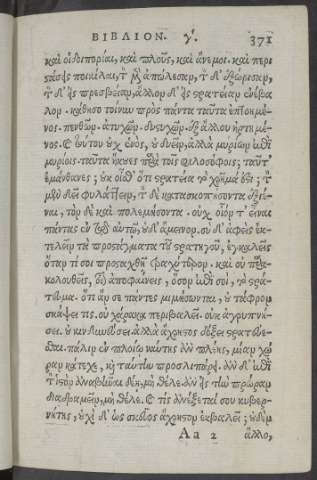 ΒΙΒΛΙΟΝ. γ'. 371
καὶ ὁδοιπορίαι, καὶ πλοῦς, καὶ ἄνεμοι. καὶ περι
στάσεις ποικίλαι, τὸν μὲν ἀπώλεσαν, τὸν δ' ἐξώρισαν,
τὸν δ' εἰς πρεσβείαν, ἄλλον δ' εἰς στρατείαν ἐνέβα
λον. κάθησο τοίνυν πρὸς πάντα ταῦτα ἐπτοημέ
νος. πενθῶν. ἀτυχῶν. δυστυχῶν. ἐξ ἄλλου ἠρτημέ
νος. καὶ τούτου οὐχ ἑνός, οὐ δυεῖν, ἀλλὰ μυρίων ἐπὶ
μυρίοις. ταῦτα ἤκουες παρὰ τοῖς φιλοσόφοις; ταῦτ'
ἐμάνθανες; οὐκ οἶσθ' ὅτι στρατεία τὸ χρῆμά ἐστι; τὸν
μὲν δεῖ φυλάττειν, τὸν δὲ κατασκοπήσοντα ἐξιέ
ναι, τὸν δὲ καὶ πολεμήσοντα. οὐχ οἷόν τ' εἶναι
πάντας ἐν τῷ αὐτῷ, οὐδ' ἄμεινον. σὺ δ' ἀφεὶς ἐκ
τελεῖν τὰ προστάγματα τοῦ στρατηγοῦ, ἐγκαλεῖς
ὅταν τί σοι προσταχθῇ τραχύτερον. καὶ οὐ παρα
κολουθεῖς, οἷον ἀποφαίνεις, ὅσον ἐπὶ σοί, τὸ στρά
τευμα. ὅτι ἄν σε πάντες μιμήσωνται, οὐ τάφρον
σκάψει τις. οὐ χάρακα περιβαλεῖ. οὐκ ἀγρυπνή
σει. οὐ κινδυνεύσει. ἀλλὰ ἄχρηστος δόξει στρατεύε
σθαι. πάλιν ἐν πλοίῳ ναύτης ἂν πλέῃς, μίαν χώ
ραν κάτεχε, καὶ ταύτην προσλιπάρει. ἂν δ' ἐπὶ
τὸν ἱστὸν ἀναβῆναι δέῃ, μὴ θέλε. ἂν εἰς τὴν πρῶραν
διαδραμεῖν, μὴ θέλε. καὶ τίς ἀνέξεταί σου κυβερ
νήτης, οὐχὶ δ' ὡς σκεῦος ἄχρηστον ἐκβαλεῖ; οὐδὲν
Aa 2 ἄλλο,